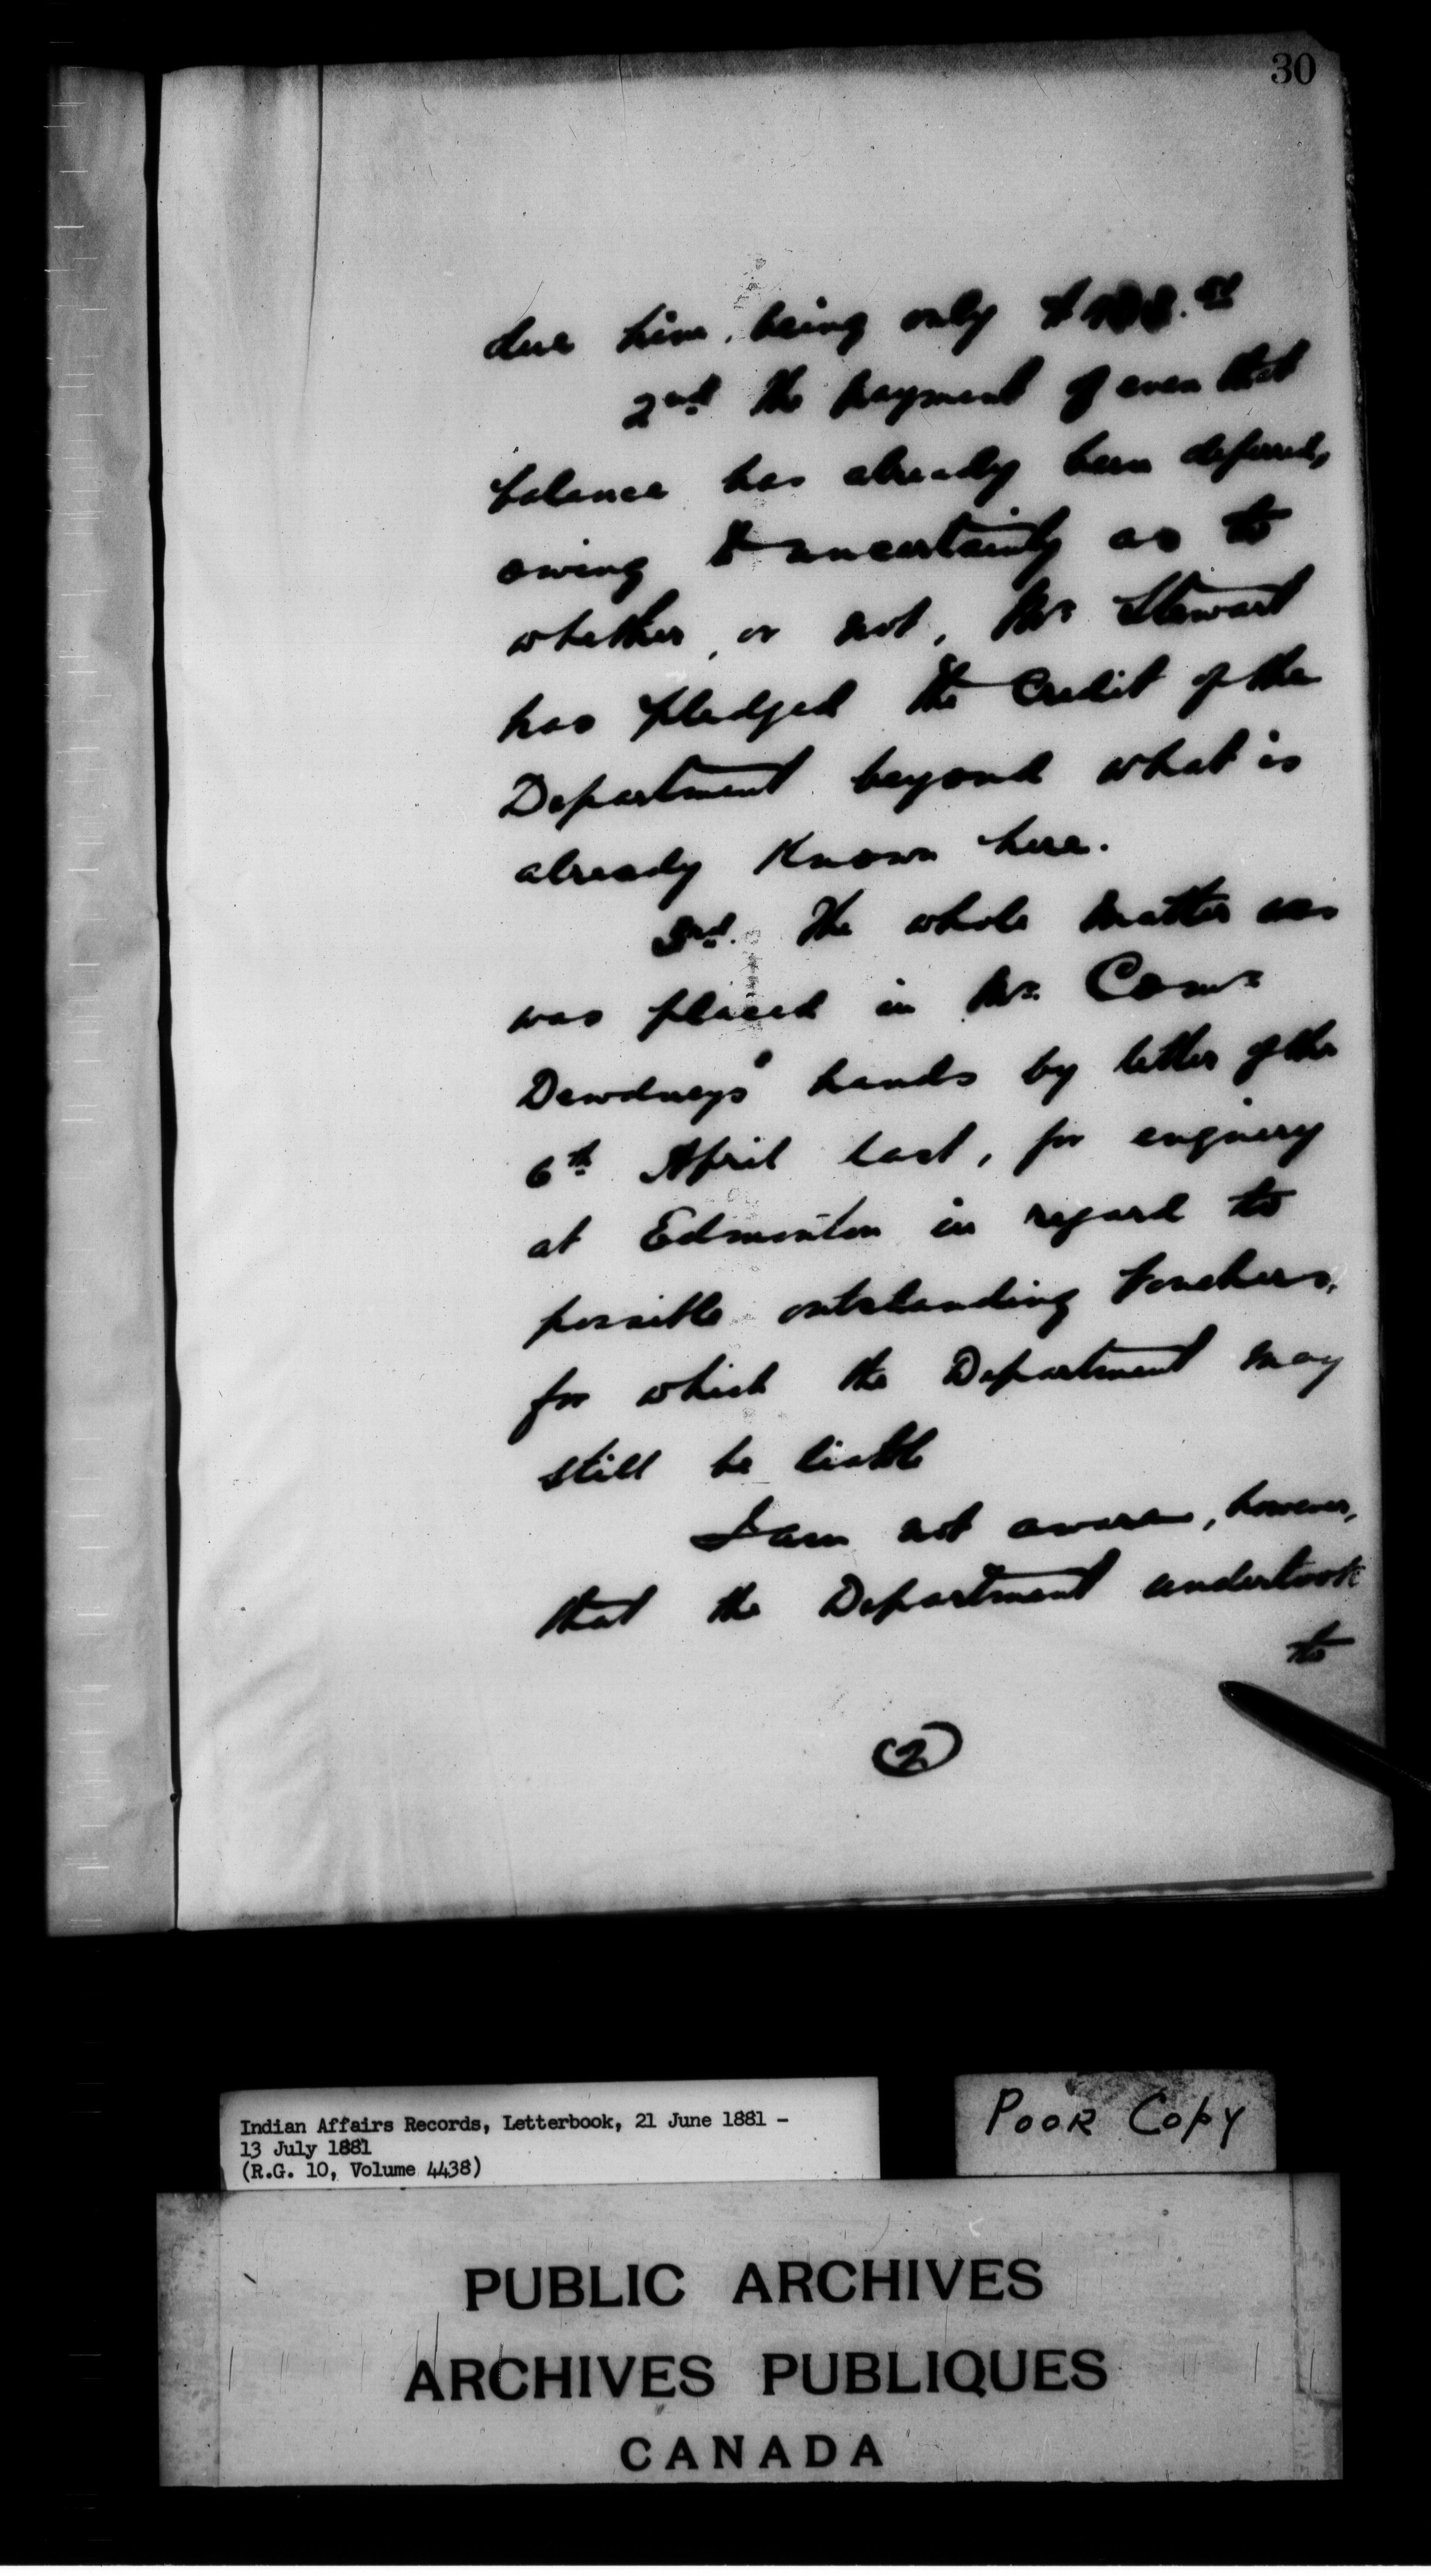 30
due him, being only $
2nd The payment of even that
balance has already been deferred,
owing to uncertainty as to
whether, or not, Mr Stewart
has pledged the Credit of the
Department beyond what is
already Known here.
3rd. The whole matter
was placed in Mr. Comr
Dewdneys' hands by letter of the
6th April last, for enquiry
at Edmonton in regard to
possible outstanding Vouchers,
for which the Department may
still be liable
I am not aware, however,
that the Department undertook
to
(2)
Indian Affairs Records, Letterbook, 21 June 1881 -
13 July 1881
(R.G. 10, Volume 4438)
POOR COPY
PUBLIC ARCHIVES
ARCHIVES PUBLIQUES
CANADA